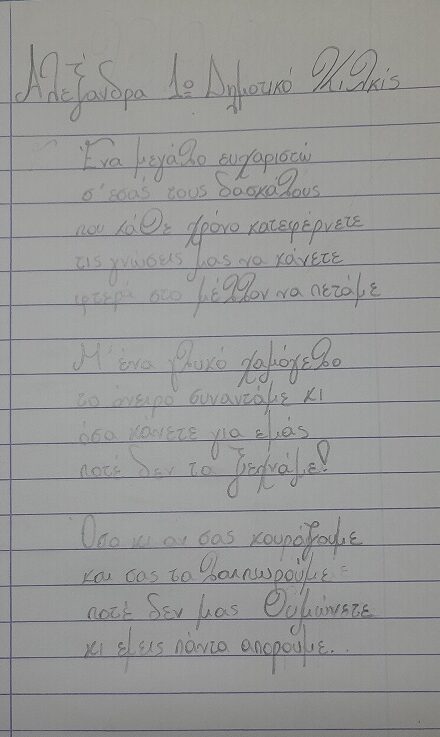 Αλεξάνδρα 1ο Δημοτικό Κιλκίς
Ένα μεγάλο ευχαριστώ
σ' εσάς τους δασκάλους
που κάθε χρόνο καταφέρνετε
τις γνώσεις μας να κάνετε
φτερά στο μέλλον να πετάμε
Μ' ένα γλυκό χαμόγελο
το όνειρο συναντάμε κι
όσα κάνετε για εμάς
ποτέ δεν τα ξεχνάμε!
Όσο κι αν σας κουράζουμε
και σας ταλαιπωρούμε
ποτέ δεν μας θυμώνετε
κι εμείς πάντα απορούμε..